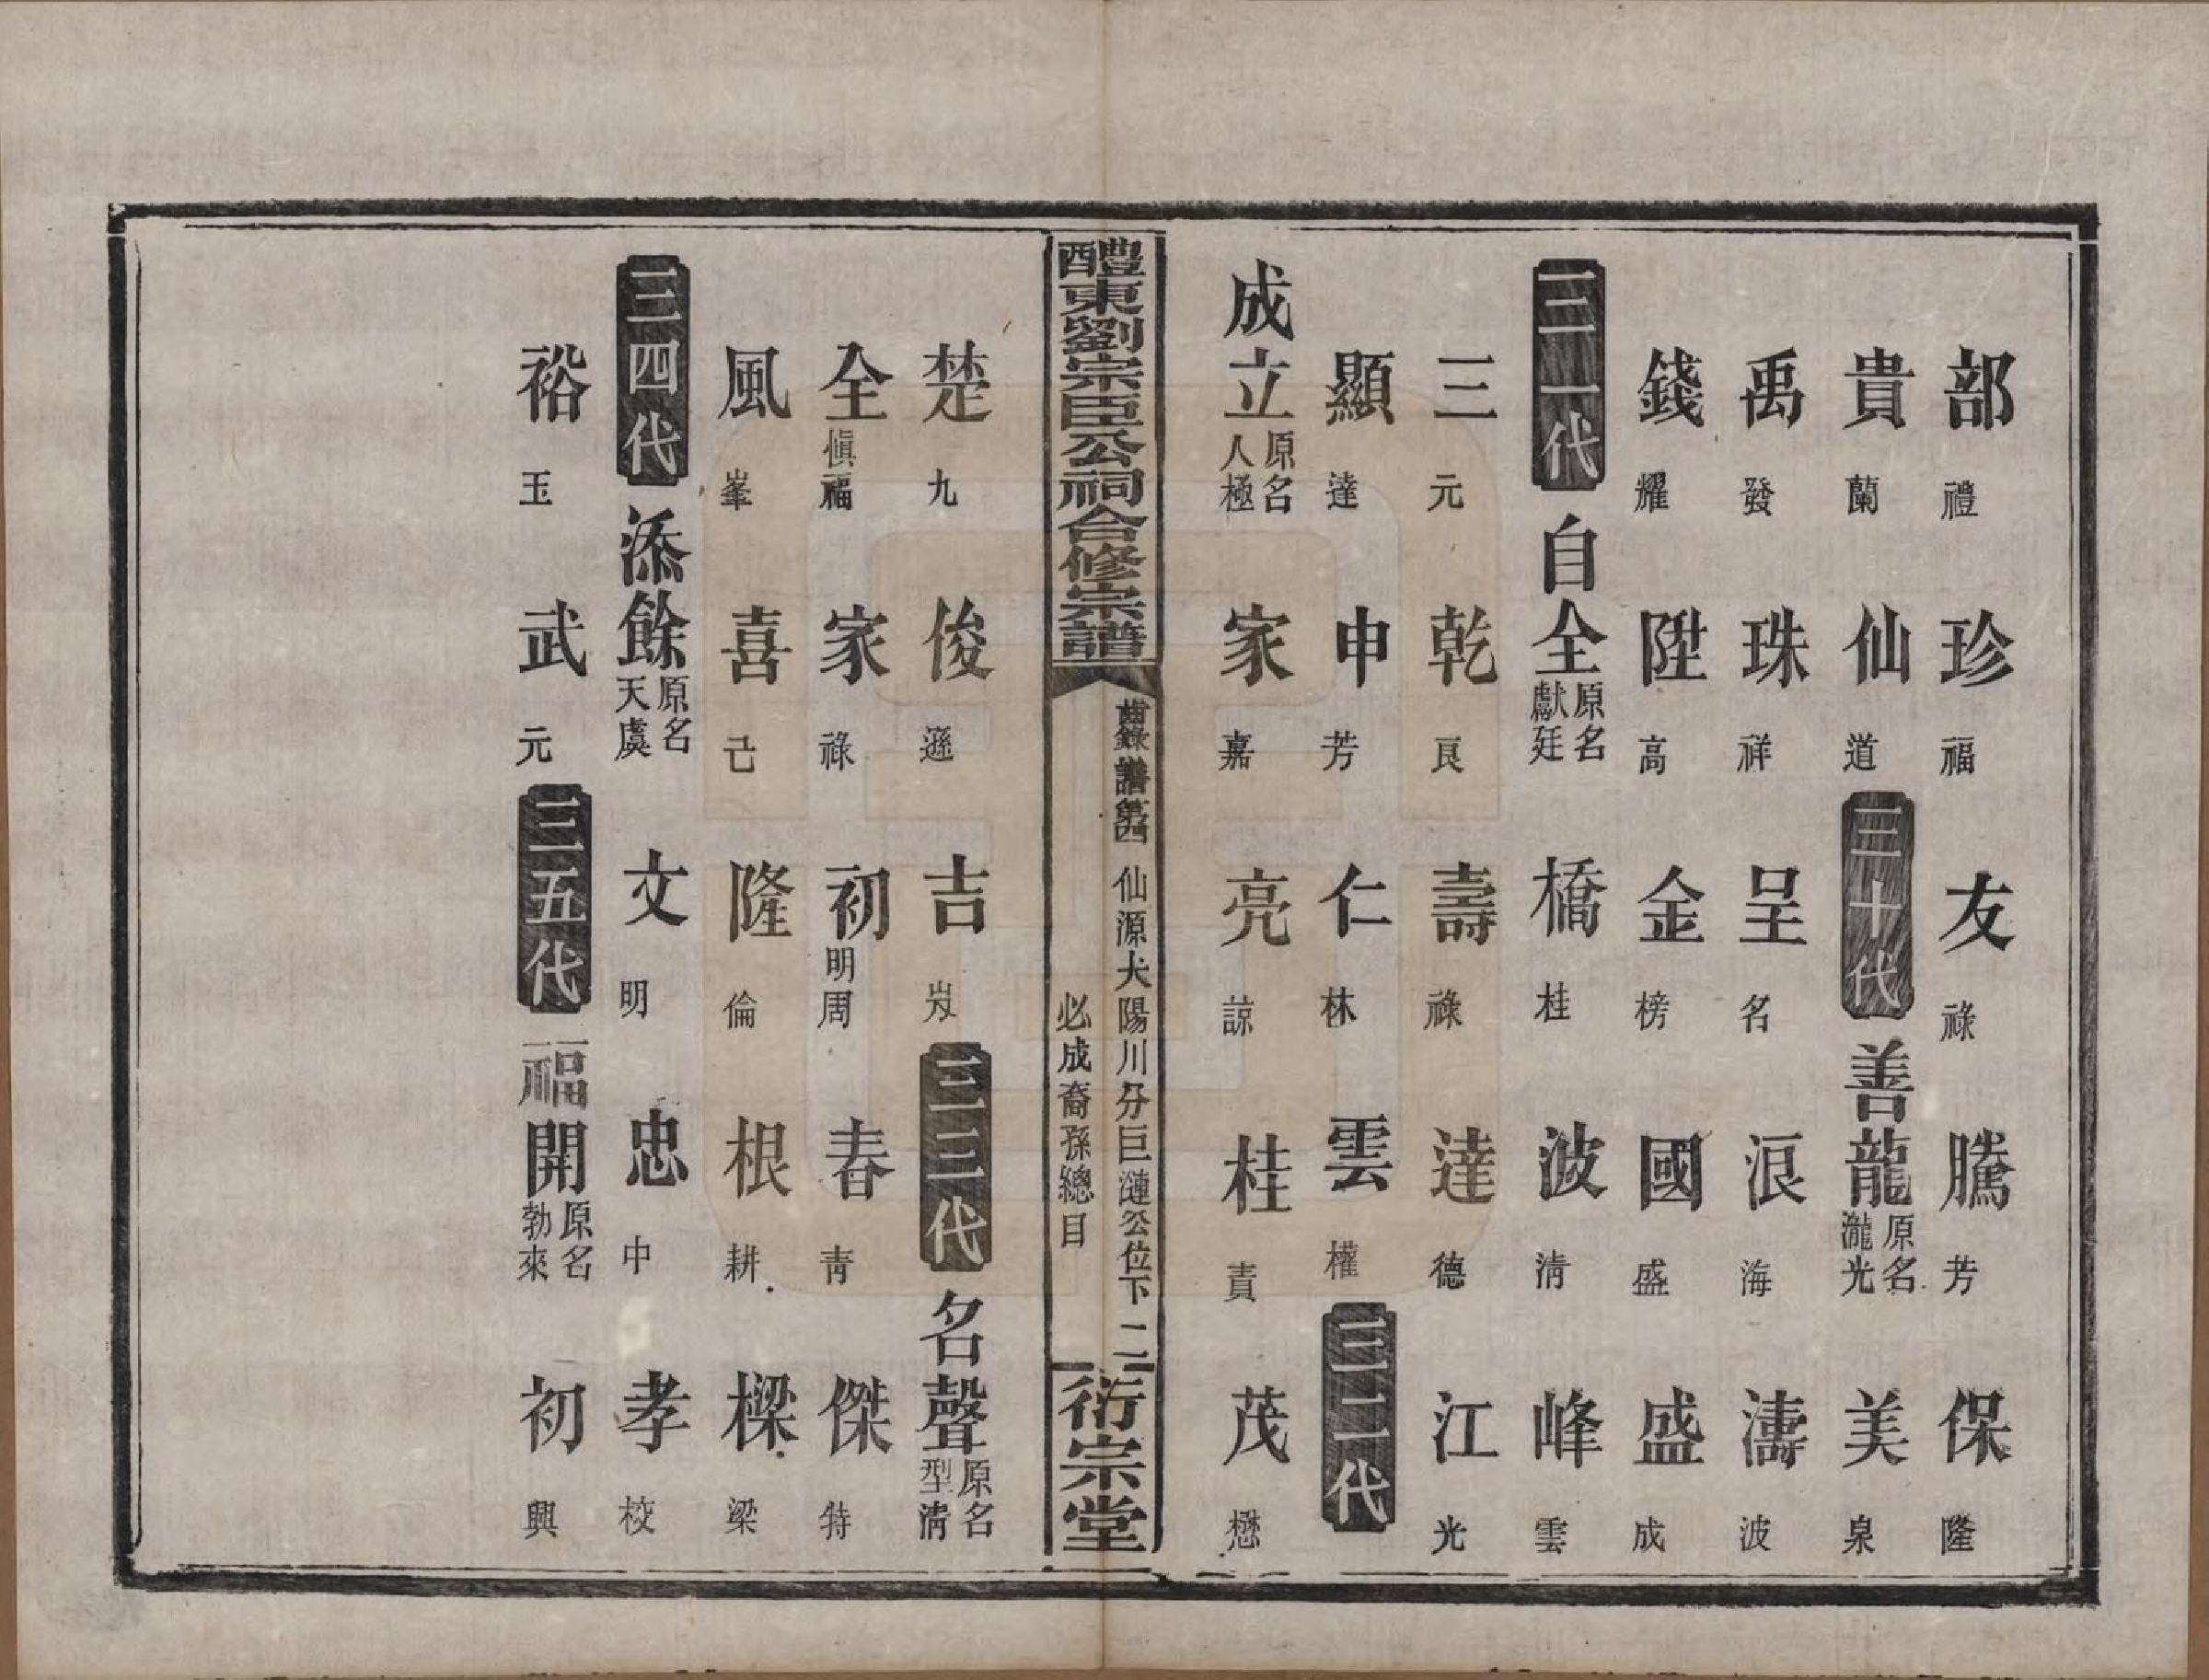 部禮 珍福 友祿 騰芳 保隆
貴蘭 仙道 三十代 善龍原名瀧光 美泉
禹發 珠祥 呈名 浪海 濤波
錢耀 陞高 金榜 國盛 盛成
三一代 自全原名獻廷 橋桂 波清 峰雲
三元 乾良 壽祿 達德 江光
顯達 申芳 仁林 雲權 三二代
成立原名人極 家嘉 亮諒 桂責 茂懋
醴東劉宗臣公祠合修宗譜
齒錄 譜第四 仙源大陽川分巨漣公位下 二
必成裔孫總目
衍宗堂
楚九 俊遜 吉岌 三三代 名聲原名型清
全愼福 家祿 初明周 春靑 傑特
風峯 喜己 隆倫 根耕 樑梁
三四代 添餘原名天虞 文明 忠中 孝校
裕玉 武元 三五代 福開原名勃來 初興